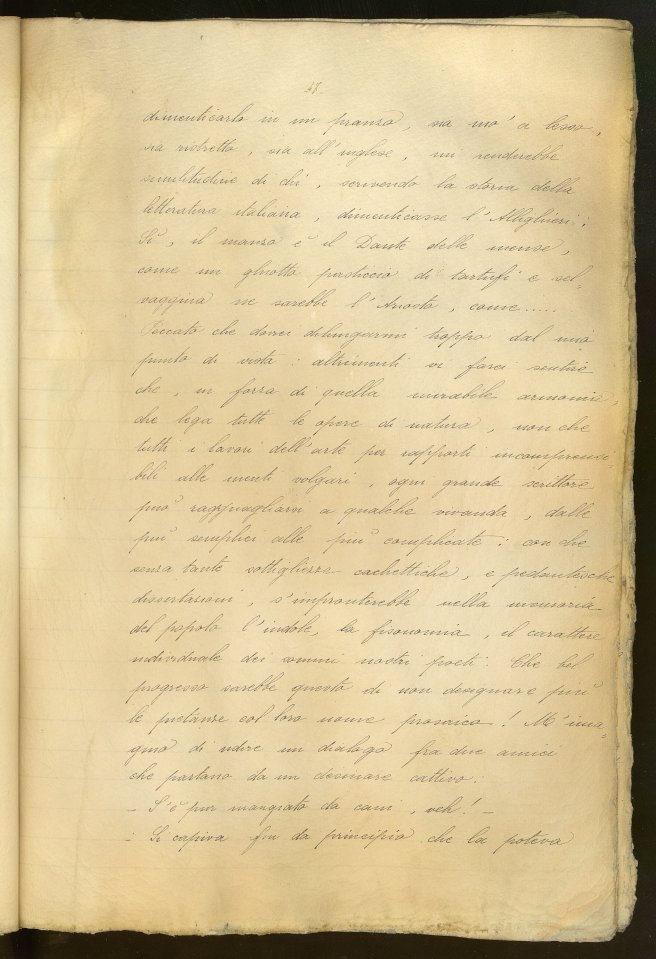 48.
dimenticarlo in un pranzo, sia mo' a lesso,
sia ristretto, sia all'inglese, mi renderebbe
similitudine di chi, scrivendo la storia della
letteratura italiana, dimenticasse l'Allighieri:
Sì, il manzo è il Dante delle mense,
come un ghiotto pasticcio di tartufi e sel-
vaggina ne sarebbe l'Ariosto, come.....
Peccato che dovrei dilungarmi troppo dal mio
punto di vista: altrimenti vi farei sentire
che, in forza di quella mirabile armonia,
che lega tutte le opere di natura, non che
tutti i lavori dell'arte per rapporti incomprensi-
bili alle menti volgari, ogni grande scrittore
può ragguagliarsi a qualche vivanda, dalle
più semplici alle più complicate: con che
senza tante sottigliezze cachettiche, e pedantesche
dissertazioni, s'impronterebbe nella memoria
del popolo l'indole, la fisonomia, il carattere
individuale dei sommi nostri poeti. Che bel
progresso sarebbe questo di non designare più
le pietanze col loro nome prosaico! M'ima-
gino di udire un dialogo fra due amici
che partano da un desinare cattivo:
— S'è pur mangiato da cani, veh! —
— Si capiva fin da principio che la poteva